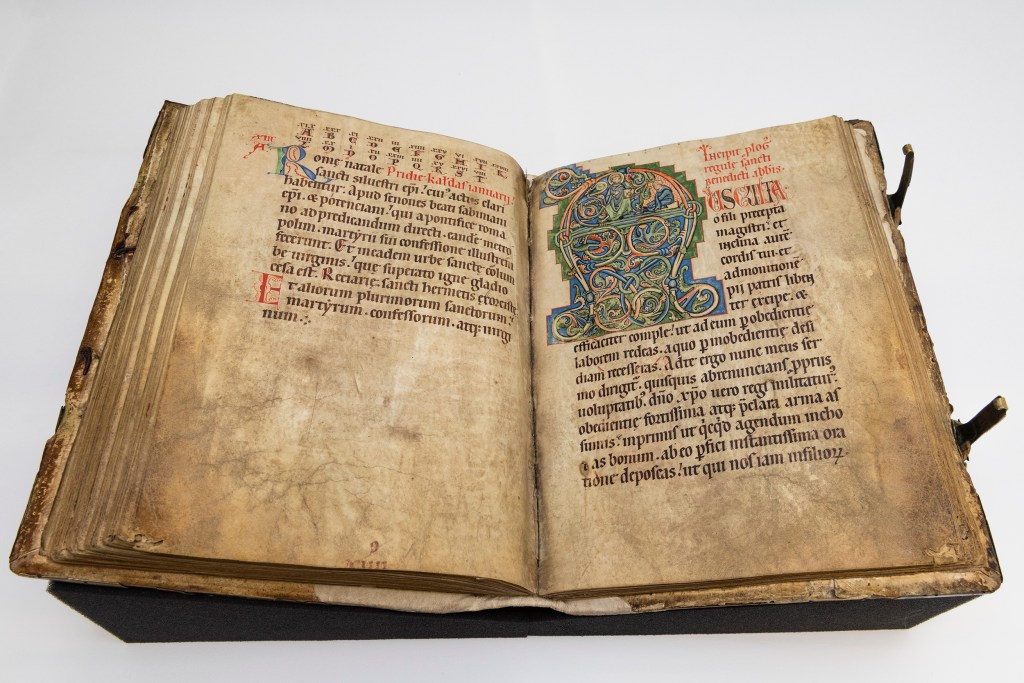 A B C D E F G H I K
O P Q R S T
Pridie kaƚdaſ ianuarij.
Rome natale
ſancti ſilueſtri ep̄i. eiuſ acteſ clari
habentur. Apud ſenonſ beati ſabiniani
ep̄i. & potenciani. qui a pontifice roma
no ad predicandum directi. eandē metro
polim martyrii ſui confeſſione illuſtrem
fecerunt. Et in eadem urbe ſanctę colum
bę uirginiſ. quę ſuperato igne gladio
ceſa eſt. Retiarię. ſancti hermetiſ exorciſtę.
Et aliorum plurimorum ſanctorum
martyrum. confeſſorum. atq; uirgi
num.
Incipit plog̓
regule ſancti
benedicti abb̄iſ.
AUSCULTA
o fili precepta
magiſtri. et
inclina aurē
cordiſ tui. et
admonitionē
pii patriſ liben
ter excipe. &
efficaciter comple. ut ad eum ꝑ obedientię
laborem redeaſ. a quo ꝑ inobedientię deſi
diam receſſeraſ. Ad te ergo nunc meuſ ſer
mo dirigit̉. quiſquiſ abrenuncianſ ꝓpriiſ
uoluptatib;. dn̄o xp̄o uero regi militatur̉.
obedientię fortiſſima atq; p̄clara arma aſ
ſumiſ. Inprimiſ ut qͥcqͥd agendum incho
aſ bonum. ab eo ꝑfici inſtantiſſima ora
tione depoſcaſ. ut qui noſ iam in filioꝝ